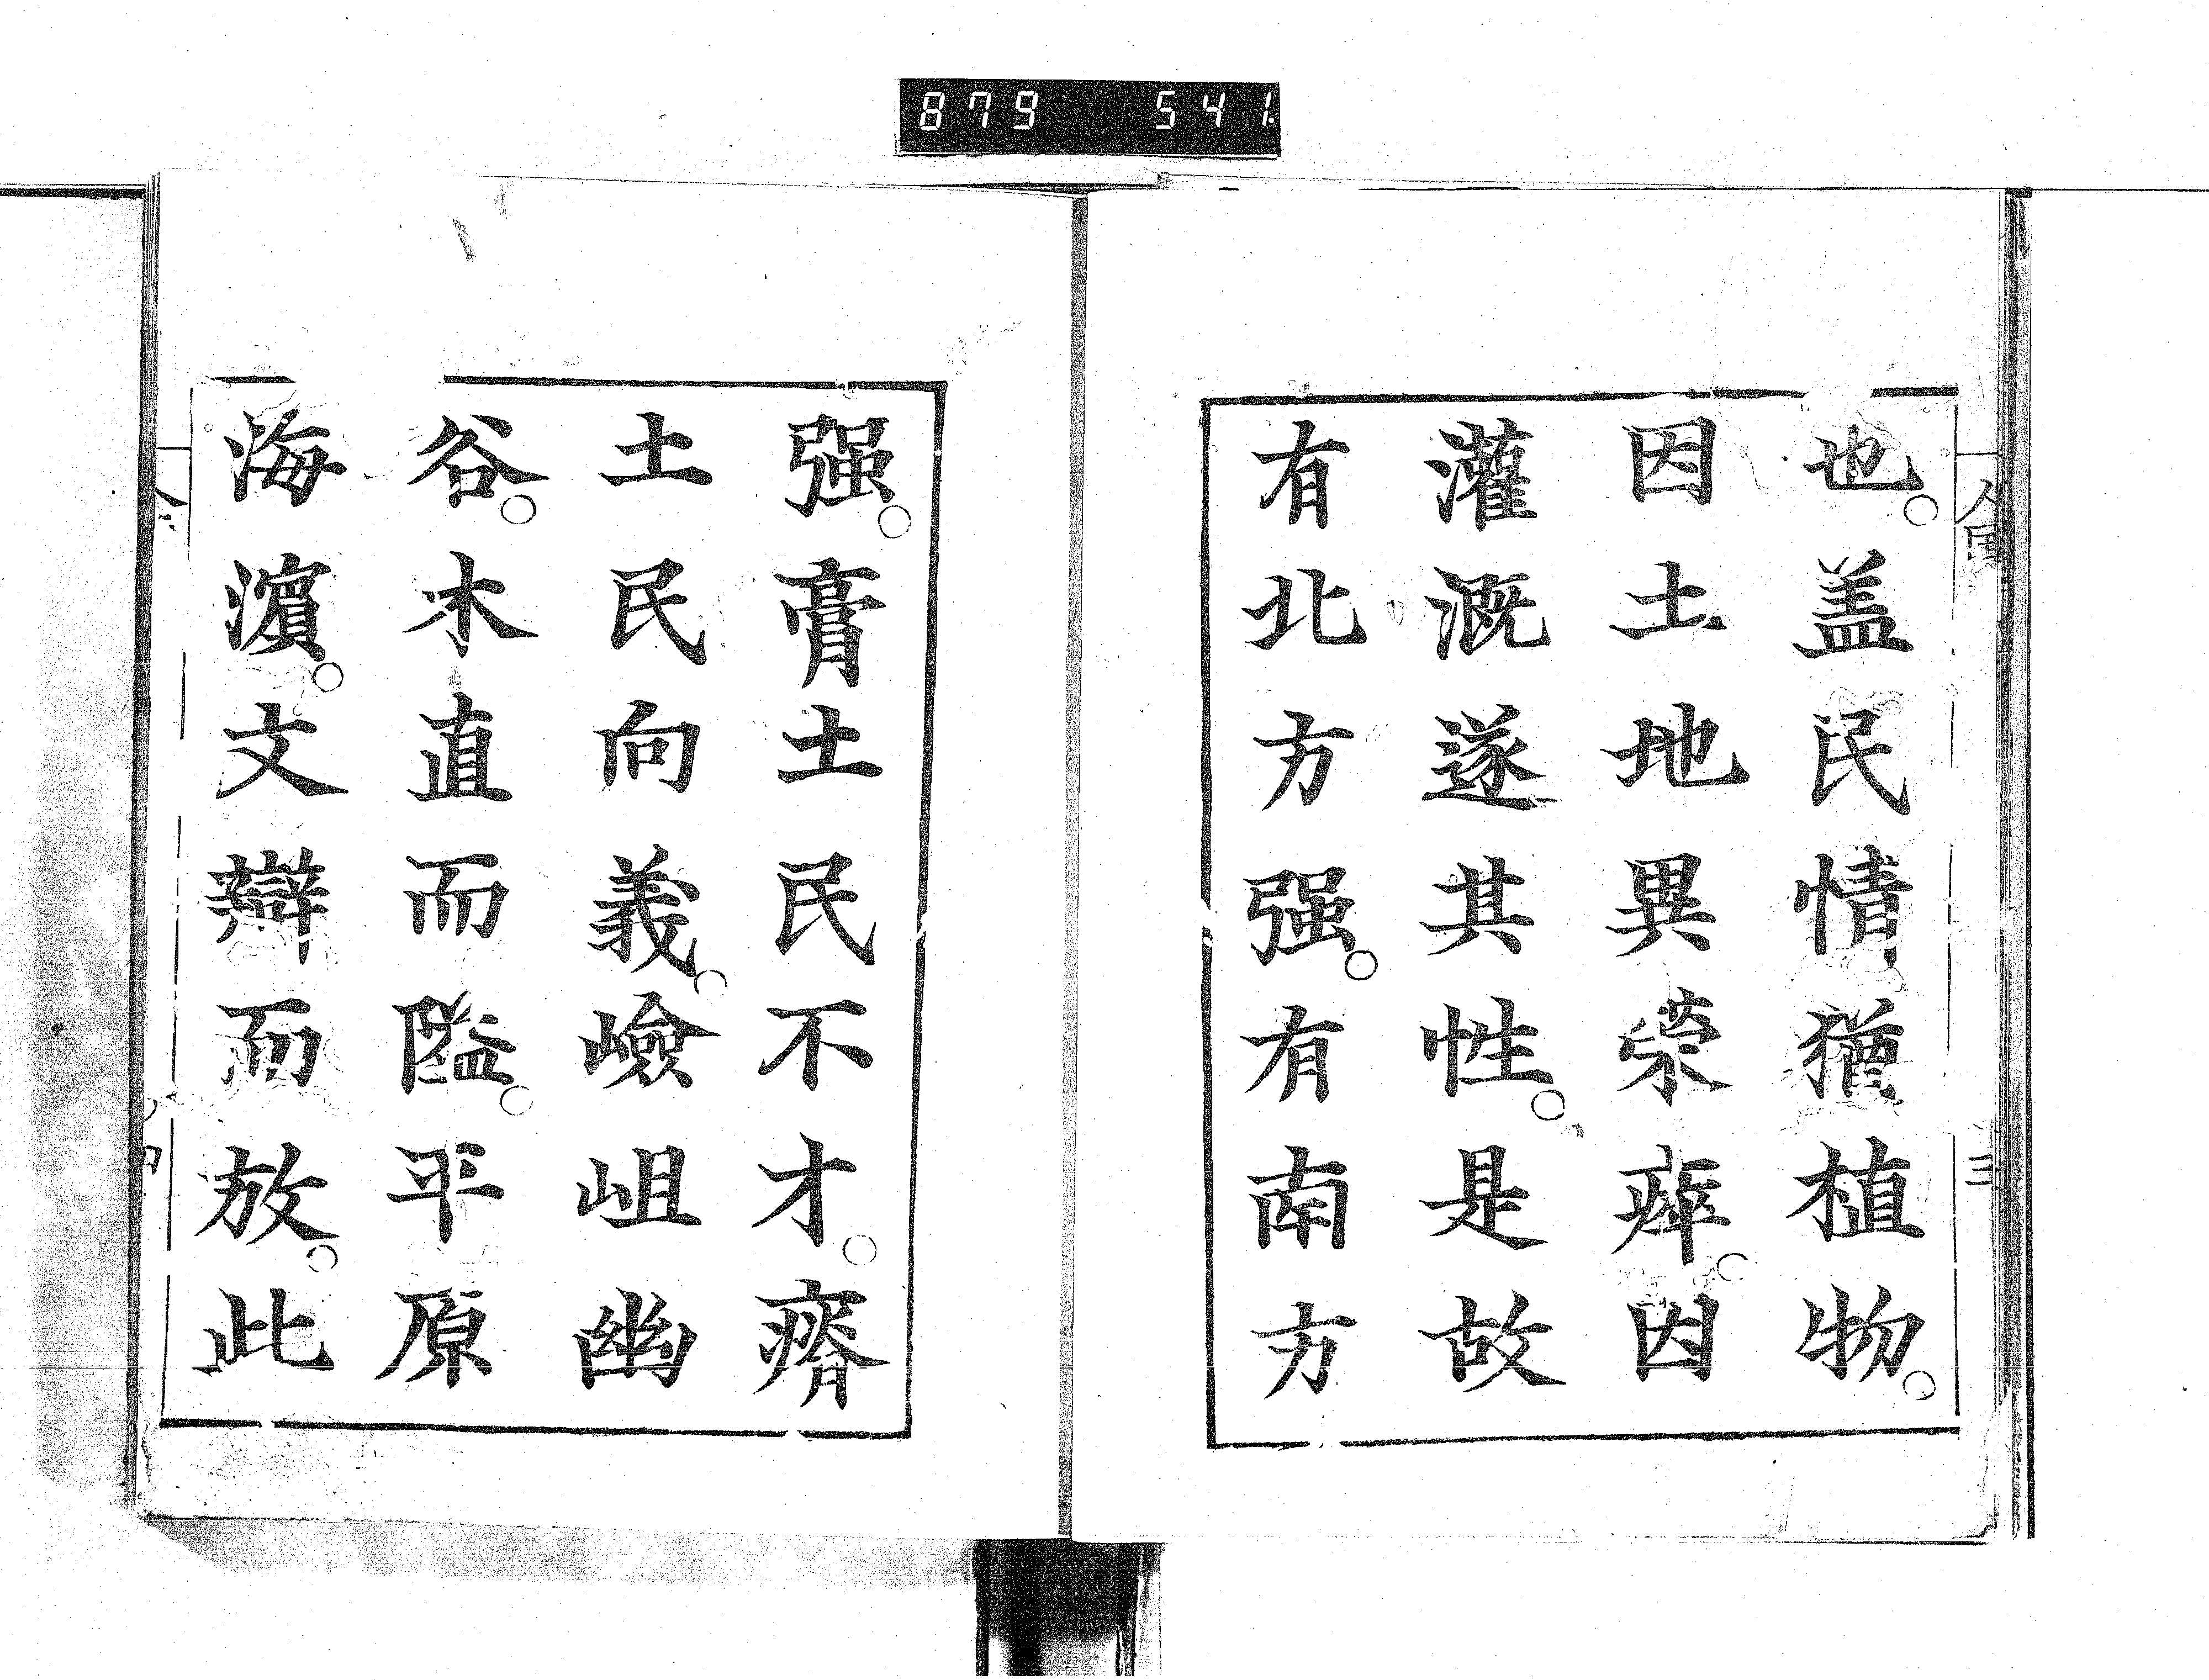 879 541
也。盖民情猶植物。
因土地異荣瘁。因
灌溉遂其性。是故
有北方强。有南方
强。膏土民不才。瘠
土民向義。嶮岨幽
谷。木直而隘。平原
海濱。文辯而放。此
三